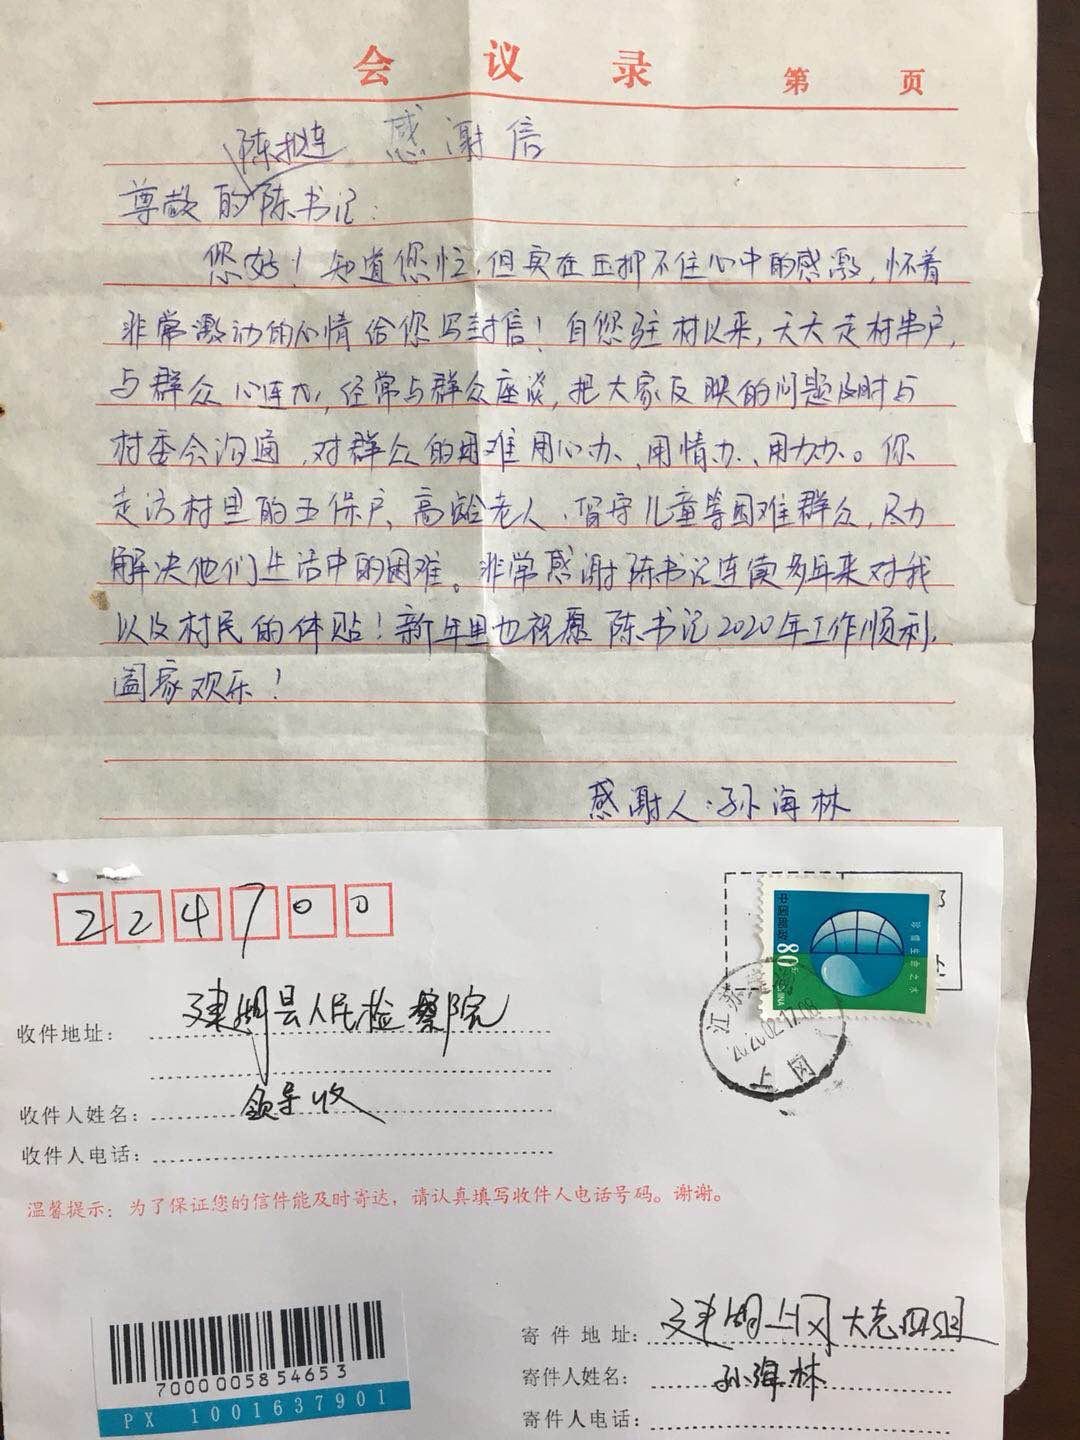 会议录 第 页
感谢信
陈拟连
尊敬的陈书记:
您好!知道您忙,但实在压抑不住心中的感激,怀着
非常激动的心情给您写封信!自您驻村以来,天天走村串户,
与群众心连心,经常与群众座谈,把大家反映的问题及时与
村委会沟通,对群众的困难用心办、用情办、用力办。你
走访村里的五保户、高龄老人、留守儿童等困难群众,尽力
解决他们生活中的困难。非常感谢陈书记连续多年来对我
以及村民的体贴!新年里也祝愿陈书记2020年工作顺利,
阖家欢乐!
感谢人:孙海林
224700
中国邮政
80分
CHINA
珍惜生命之水
江苏建湖
2020.02.17.08
上冈
收件地址: 建湖县人民检察院
收件人姓名: 领导收
收件人电话:
温馨提示:为了保证您的信件能及时寄达,请认真填写收件人电话号码。谢谢。
7000005854653
PX 1001637901
寄件地址: 建湖上冈大志四组
寄件人姓名: 孙海林
寄件人电话: